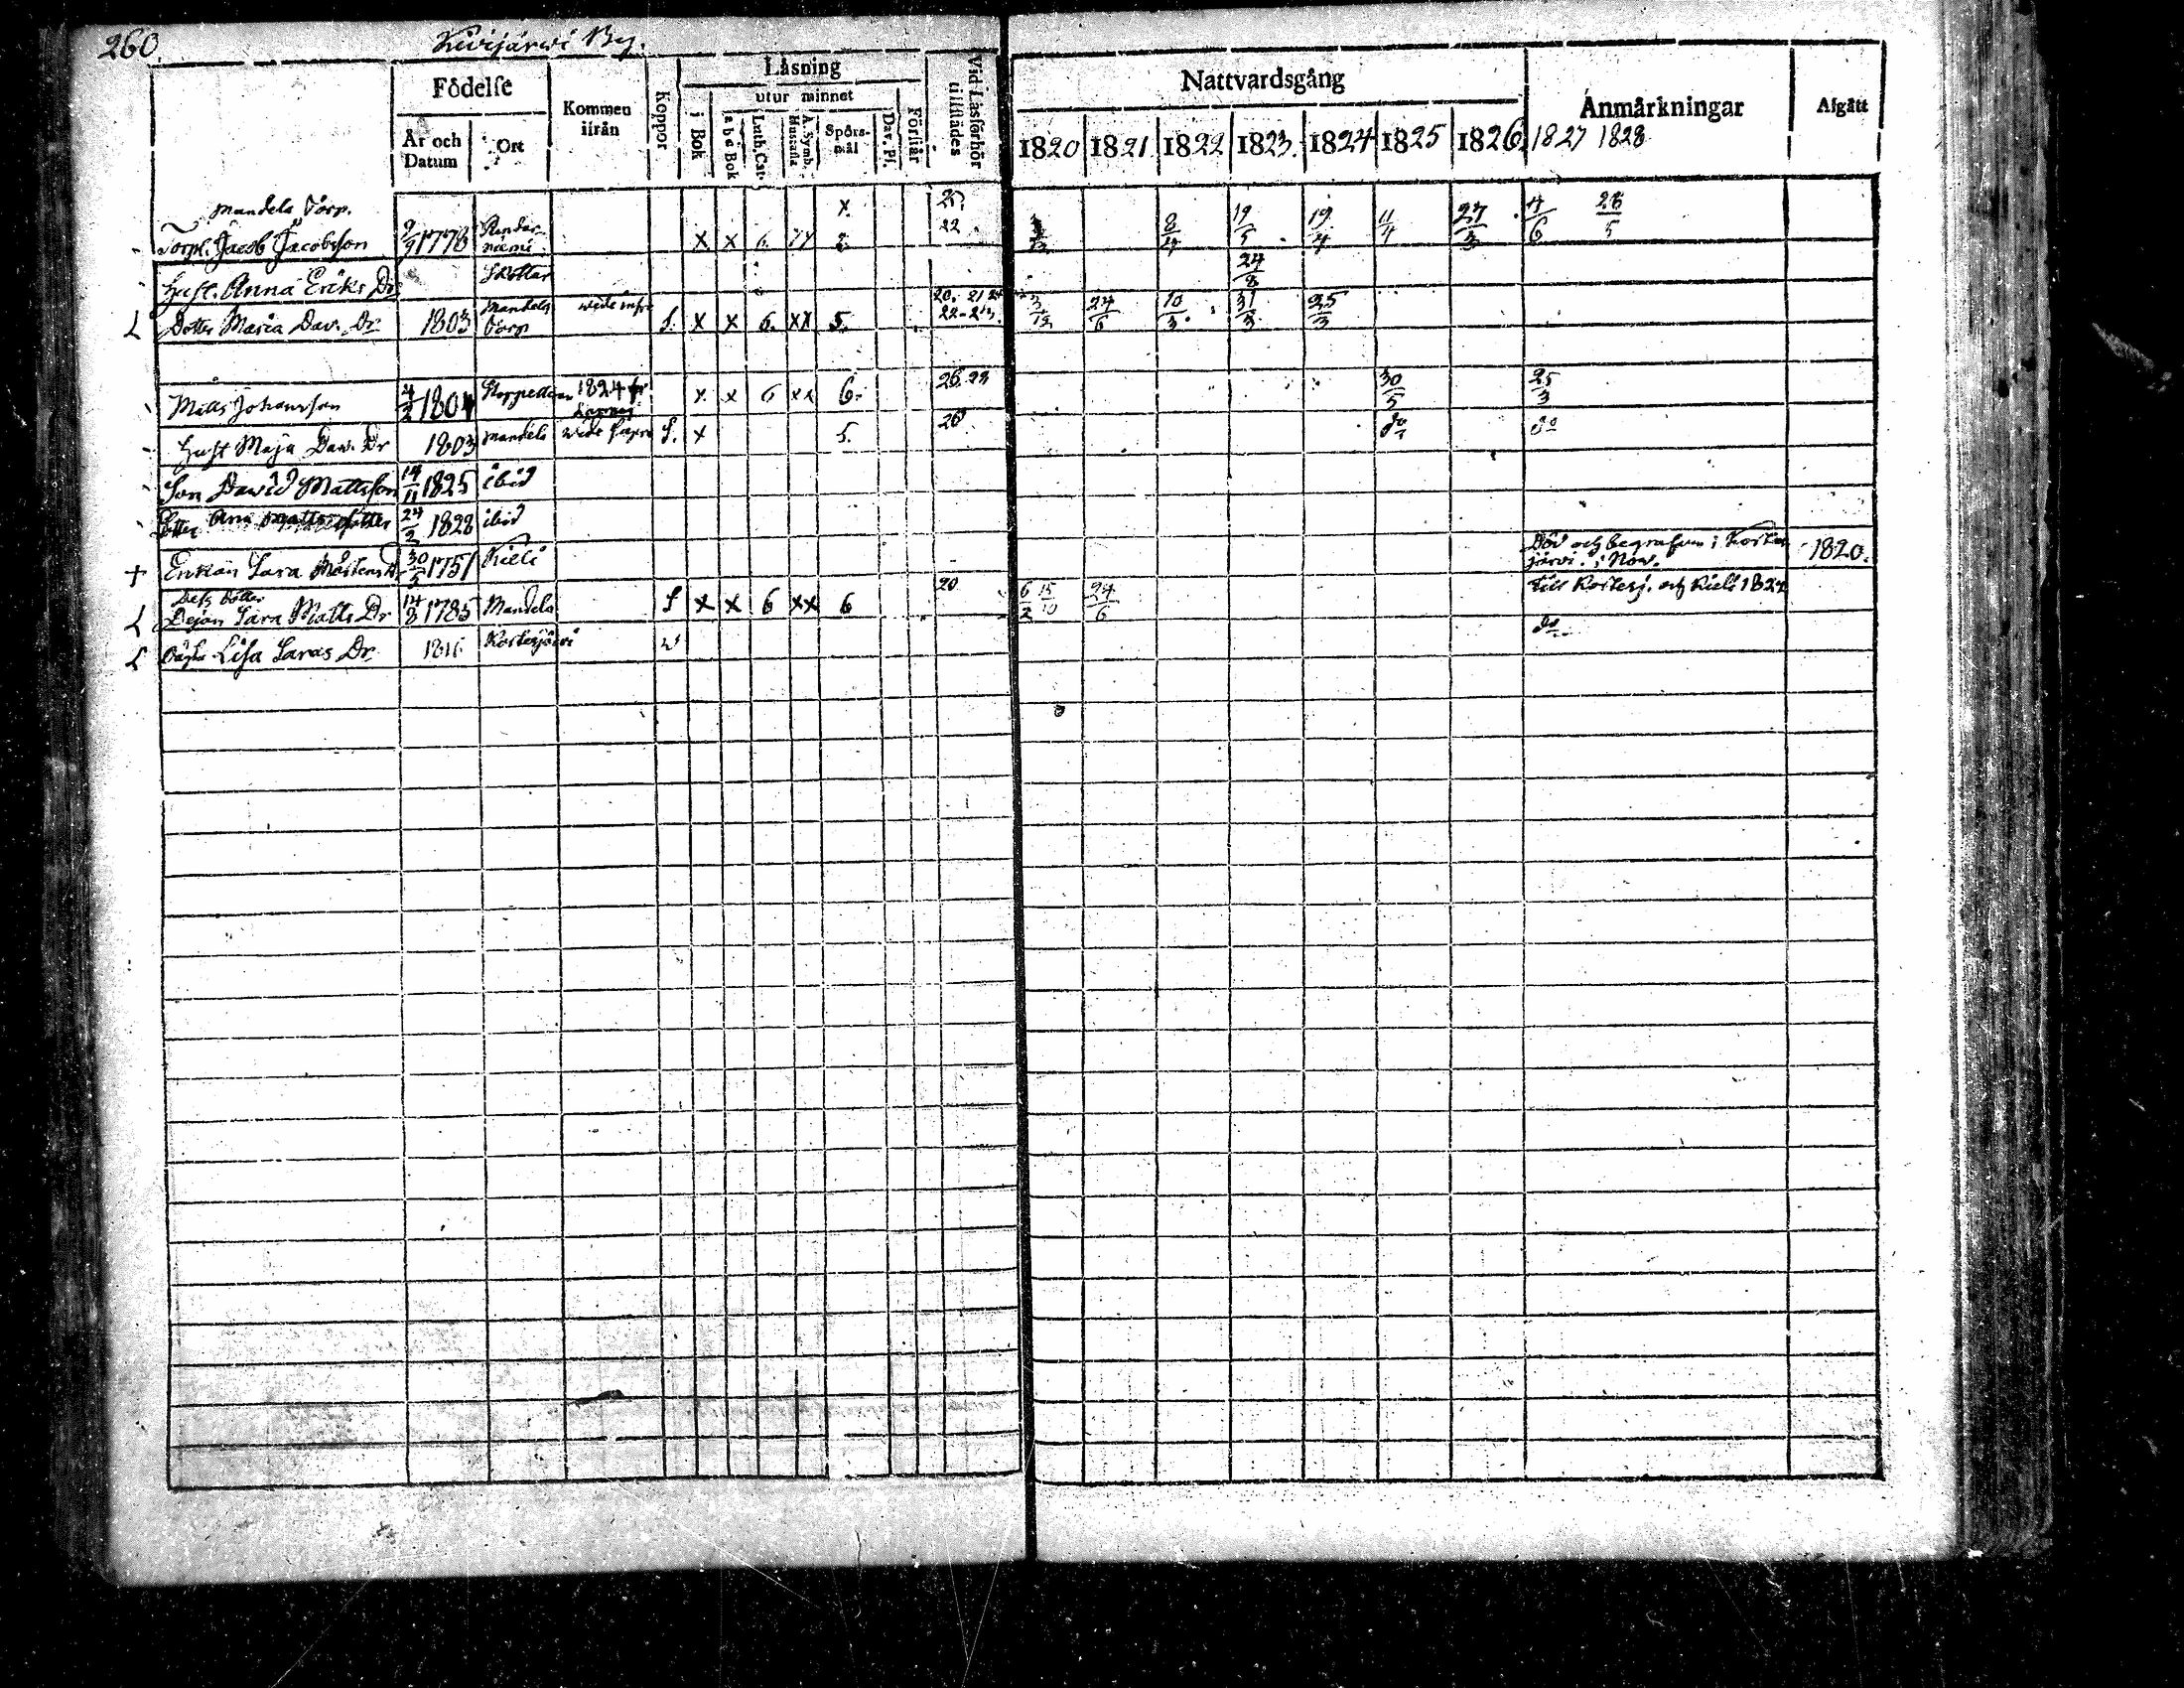 260.
Kivijärwi By.
Födelse
År och Datum
Ort
Kommen ifrån
Koppor
Låsning
i Bok
utur minnet
a b c Bok
Luth. Cat.
A. Symb. Hustafla
Spörs-mål
Dav. Ps.
Förstår
Vid Låsförhör tillstädes
Nattvardsgång
1820 1821 1822 1823. 1824 1825 1826.
Anmärkningar
1827 1828
Afgått
Mandela Torp.
Torp. Jacob Jacobsson 9/9 1778 x x 6. 22 8/4 19/5 19/4 11/4 27/3 26/5
Hust. Anna Eriks Dr Skottar 24/8
L Dotter Maria Dav. Dr 1803 Mandela Torp wide infra S. x x 6. xx 5. 20. 21 22-23. 3/12 24/6 10/3. 31/3 25/3
Matts Johansson 4/2 1804 1824 x x 6 xx 6. 26.23 30/5 25/3
Hust Maja Daw. Dr 1803 Mandela wide supra S. x 5. 26 do do
Son Dawid Mattsson 14/11 1825 ibid
Dotter Ana 24/2 1828 ibid
+ Enkan Sara Mårtens Dr 30/5 1751 Kieli Död och begrafven i Korte-
järvi. i Nov. 1820.
Dess dotter
L Dejan Sara Matts Dr 14/8 1785 Mandela S x x 6 xx 6 20 6/2 15/10 24/6 till Kortesj. och Kieli 1821
L Lisa Saras Dr. 1816 Kortesjärvi do